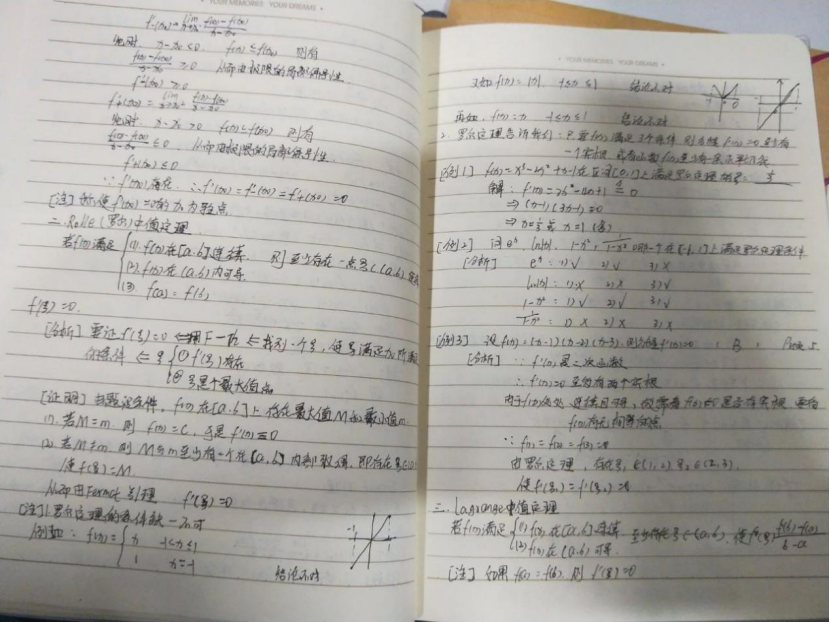 YOUR MEMORIES YOUR DREAMS
f'-(x₀) = lim f(x)-f(x₀) / x-x₀
此时 x-x₀<0 f(x) ≤ f(x₀) 则有
f(x)-f(x₀) / x-x₀ ≥ 0 从而由极限的局部保号性
f'-(x₀) ≥ 0
f'+(x₀) = lim f(x)-f(x₀) / x-x₀
此时 x-x₀>0 f(x) ≤ f(x₀) 则有
f(x)-f(x₀) / x-x₀ ≤ 0 从而由极限的局部保号性
f'+(x₀) ≤ 0
∵ f'(x₀)存在 ∴ f'(x₀) = f'-(x₀) = f'+(x₀) = 0
[注] 称使f'(x₀)=0的x₀为驻点
二. Rolle (罗尔)中值定理
若f(x)满足 (1) f(x)在[a,b]连续 则至少存在一点ξ∈(a,b)
(2) f(x)在(a,b)内可导
(3) f(a) = f(b)
f'(ξ)=0.
[分析] 要证f'(ξ)=0 ⇐ ⇐ 找到一个ξ, 使ξ满足
的条件 ⇐ ξ ① f'(ξ)存在
② ξ是个最大值点
[证明] 由题设条件, f(x)在[a,b]上存在最大值M和最小值m
(1). 若M=m. 则 f(x)=C, 于是f'(x)≡0
(2). 若M≠m 则 M与m至少有一个在(a,b)内部取得, 即存在ξ∈
使f(ξ)=M
从而由Fermat引理 f'(ξ)=0
[注]1.罗尔定理的条件缺一不可
例如: f(x)= x -1<x≤1
1 x=-1
结论不对
YOUR MEMORIES YOUR DREAMS
又如f(x)=|x|. -1≤x≤1 结论不对
再如. f(x)=x -1≤x≤1 结论不对
2. 罗尔定理告诉我们: 只要f(x)满足3个条件 则方程f'(x)=0至少有
一个实根
[例1] f(x)=x³-2x²+x-1在区间[0,1]上满足罗尔定理的ξ= 1/3
解: f'(x)=3x²-4x+1 = 0
⇒ (x-1)(3x-1)=0
⇒ x=1/3或 x=1 (舍)
[例2] eˣ, ln|x|, 1-x², 1/1-x² 在[-1,1]上满足罗尔定理条件
[分析] eˣ: 1)√ 2)√ 3)×
ln|x|: 1)× 2)× 3)√
1-x²: 1)√ 2)√ 3)√
1/1-x²: 1)× 2)× 3)×
[例3] 设f(x)=(x-1)(x-2)(x-3). 则方程f'(x)=0
[分析] ∵ f'(x)是二次函数
∴ f'(x)=0至多有两个实根
由于f(x)处处连续且可导,
∵ f(1)=f(2)=f(3)=0
由罗尔定理, 存在ξ₁∈(1,2) ξ₂∈(2,3).
使f'(ξ₁)=f'(ξ₂)=0
三. Lagrange中值定理
若f(x)满足 (1) f(x)在[a,b]连续. 至少存在ξ∈(a,b). 使f'(ξ)= f(b)-f(a) / b-a
(2) f(x)在(a,b)可导.
[注] 如果 f(a)=f(b). 则 f'(ξ)=0